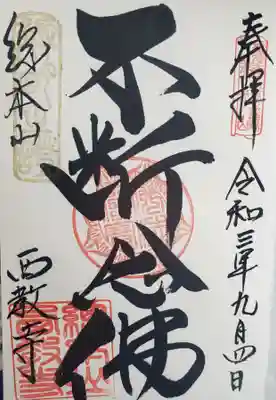 奉拝
令和三年九月四日
不断念佛
総本山
西教寺